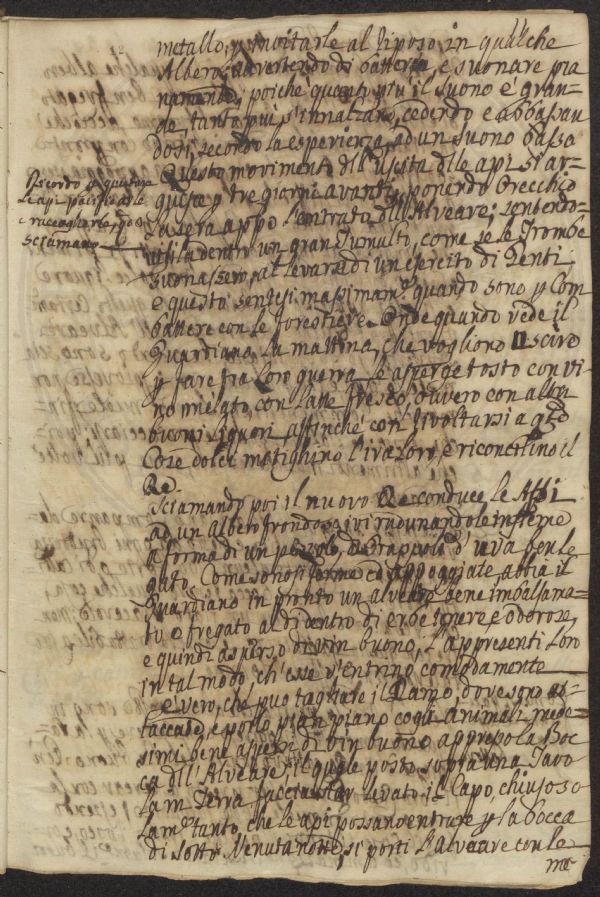 metallo, p invitarle al riposo in qualche
Albero, avvertendo di battere, e suonare pia
namente, poiche quanto più il suono è gran=
de, tanto più s'innalzano, cedendo e abbassan
dosi, secondo la esperienza ad un suono basso
Questo movimento dll'uscita dlle api si ar=
guisce p tre giorni avanti, ponendo Orecchio
Ricordo p quietare
le api pacificarle
e raccoglierle, qdo
sciamano
la sera appo l'entrata dll'Alveare; sentendo=
visi la dentro un gran Tumulto, come se le Trombe
suonassero, al levarsi di un esercito di Genti
e questo sentesi massimam.e quando sono p Com
battere con le forestiere. Onde quando vede il
Guardiano, la mattina, che vogliono Uscire
p fare fra loro guerra, le asperge tosto con vi
no mielato, con latte fresco, ovvero con altri
buoni liquori, affinchè con rivoltarsi a qte
Cose dolci mitighino l'ira loro, e riconcilino il
Re.
Sciamando poi il nuovo Re conduce le Appi
ad un albero frondoso, ivi radunandole insieme
a forma di un picciolo, di Grappolo d'uva ben le
gato. Come sonosi ferme ed appoggiate, abbia il
Guardiano in pronto un alveare bene imbalsama=
to e fregato al didentro di erbe tenere e odorose
e quindi asperso di vin buono, l'appresenti loro
in tal modo, ch'esse v'entrino comodamente
È vero, che può tagliare il Ramo, dove sono at=
taccate, e porlo pian piano cogli animali mede=
simi bene aspersi di vin buono appresso la Boc
ca dll'Alveare, il quale posto sopra una Tavo
la in Terra faccia star levato il Capo, chiuso so
lam.e tanto, che le api possano entrare p la bocca
di sotto. Venuta notte, si porti l'alveare con le
me